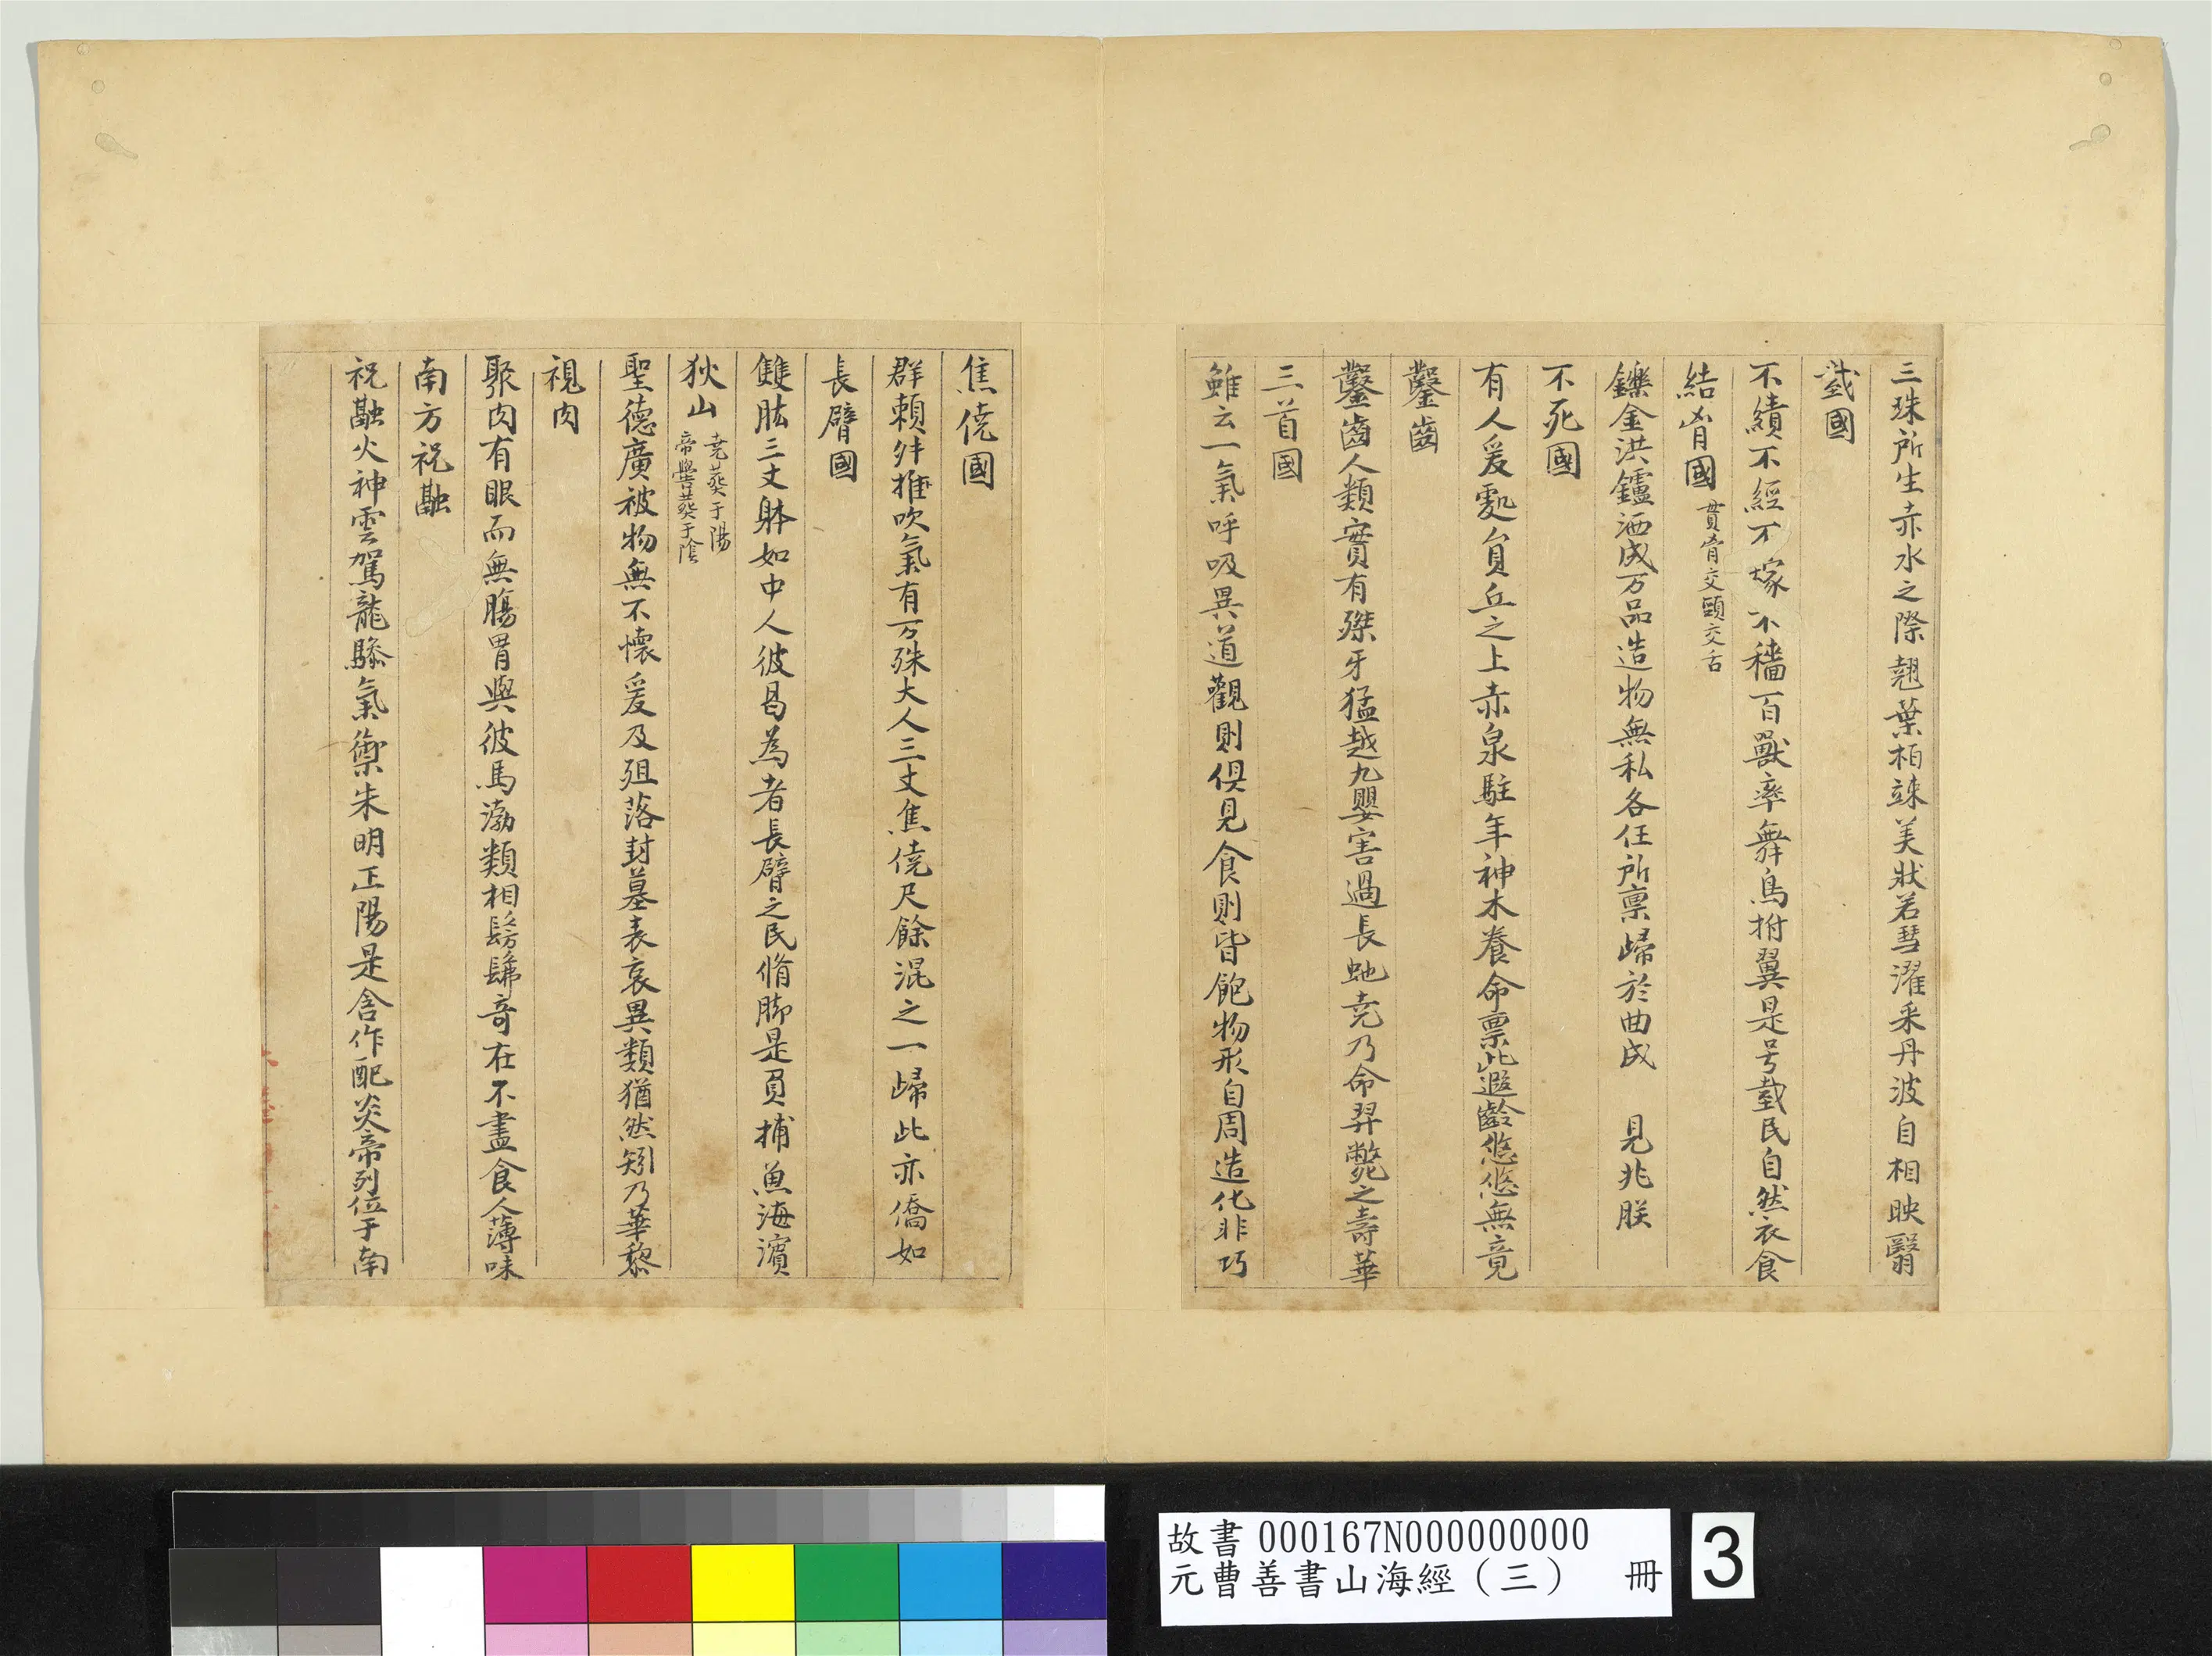 三珠所生赤水之際翹葉柏竦美狀若彗濯采丹波自相映翳
臷國
不績不經不稼不穡百獸率舞鳥拊翼是号臷民自然衣食
結胷國 貫胷交頸交舌
鑠金洪鑪洒成万品造物無私各任所稟歸於曲成 見兆朕
不死國
有人爰處員丘之上赤泉駐年神木養命稟此遐齡悠悠無竟
鑿齒
鑿齒人類實有傑牙猛越九嬰害過長虵堯乃命羿斃之壽華
三首國
雖云一氣呼吸異道觀則俱見食則皆飽物形自周造化非巧
焦僥國
群籟舛推吹氣有万殊大人三丈焦僥尺餘混之一歸此亦僑如
長臂國
雙肱三丈躰如中人彼曷為者長臂之民脩脚是負捕魚海濱
狄山 堯葬于陽
帝嚳葬于陰
聖德廣被物無不懷爰及殂落封墓表哀異類猶然矧乃華黎
視肉
聚肉有眼而無腸胃與彼馬渤類相髣髴奇在不盡食人薄味
南方祝融
祝融火神雲駕龍驂氣禦朱明正陽是含作配炎帝列位于南
故書 000167N000000000
元曹善書山海經（三） 冊
3